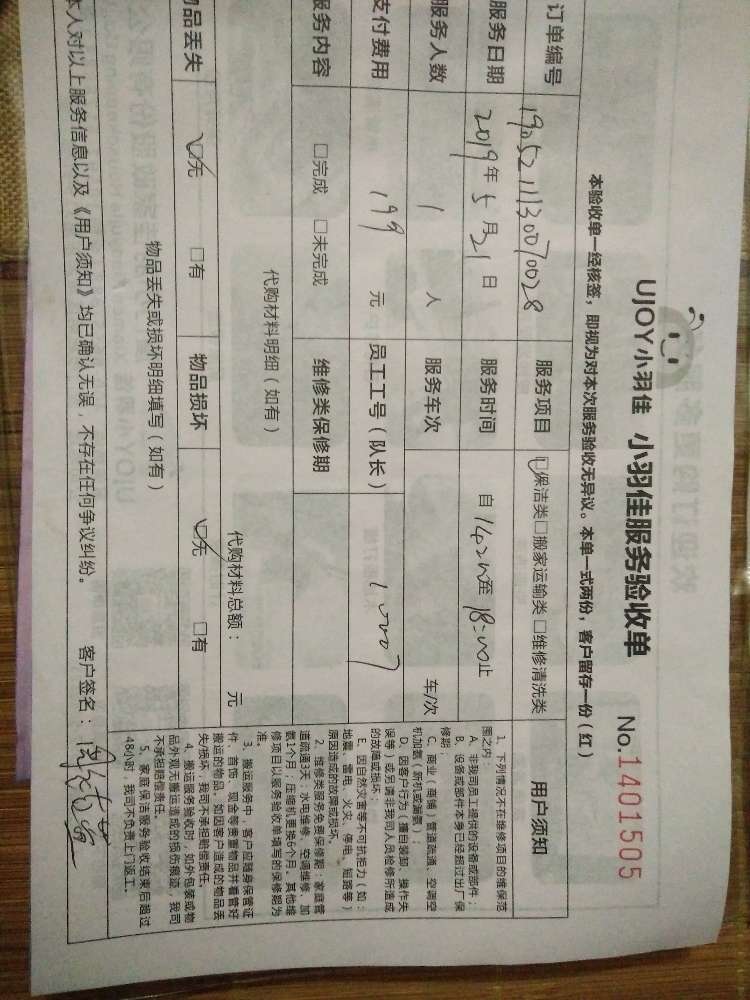 UJOY小羽佳 小羽佳服务验收单 No.1401505
本验收单一经核签，即视为对本次服务验收无异议。本单一式两份，客户留存一份（红）
订单编号 1905211130070028 服务项目 ☑保洁类□搬家运输类□维修清洗类
服务日期 2019年5月21日 服务时间 自 至 止
服务人数 1 人 服务车次 车/次
支付费用 199 元 员工工号（队长）
服务内容 □完成 □未完成 维修类保修期
代购材料明细（如有）
代购材料总额： 元
物品丢失 ☑无 □有 物品损坏 ☑无 □有
物品丢失或损坏明细填写（如有）
本人对以上服务信息以及《用户须知》均已确认无误，不存在任何争议纠纷。 客户签名：
用户须知
1、下列情况不在维修项目的维保范
围之内：
A、非我司员工提供的设备或部件；
B、设备或部件本身已经超过出厂保
修期；
C、商业（商铺）管道疏通、空调空
机加氨（新机或漏氨）；
D、因客户行为（擅自装卸、操作失
误等）或后请非我司人员检修所造成
的故障或损坏；
E、因自然灾害等不可抗拒力（如：
地震、雷电、火灾、停电、短路等）
原因造成的故障或损坏。
2、维修类服务免费保修期：家庭管
道疏通3天；水电维修、空调维修、加
氨1个月；压缩机更换6个月。其他维
修项目以服务验收单填写的保修期为
准。
3、搬运服务中，客户应随身保管证
件、首饰、现金等贵重物品并看管好
搬运的物品。如因客户造成的物品丢
失/损坏，我司不承担赔偿责任。
4、搬运服务验收时，如外包装或物
品外观无搬运造成的损伤痕迹，我司
不承担赔偿责任。
5、家庭保洁服务验收结束后超过
48小时，我司不负责上门返工。